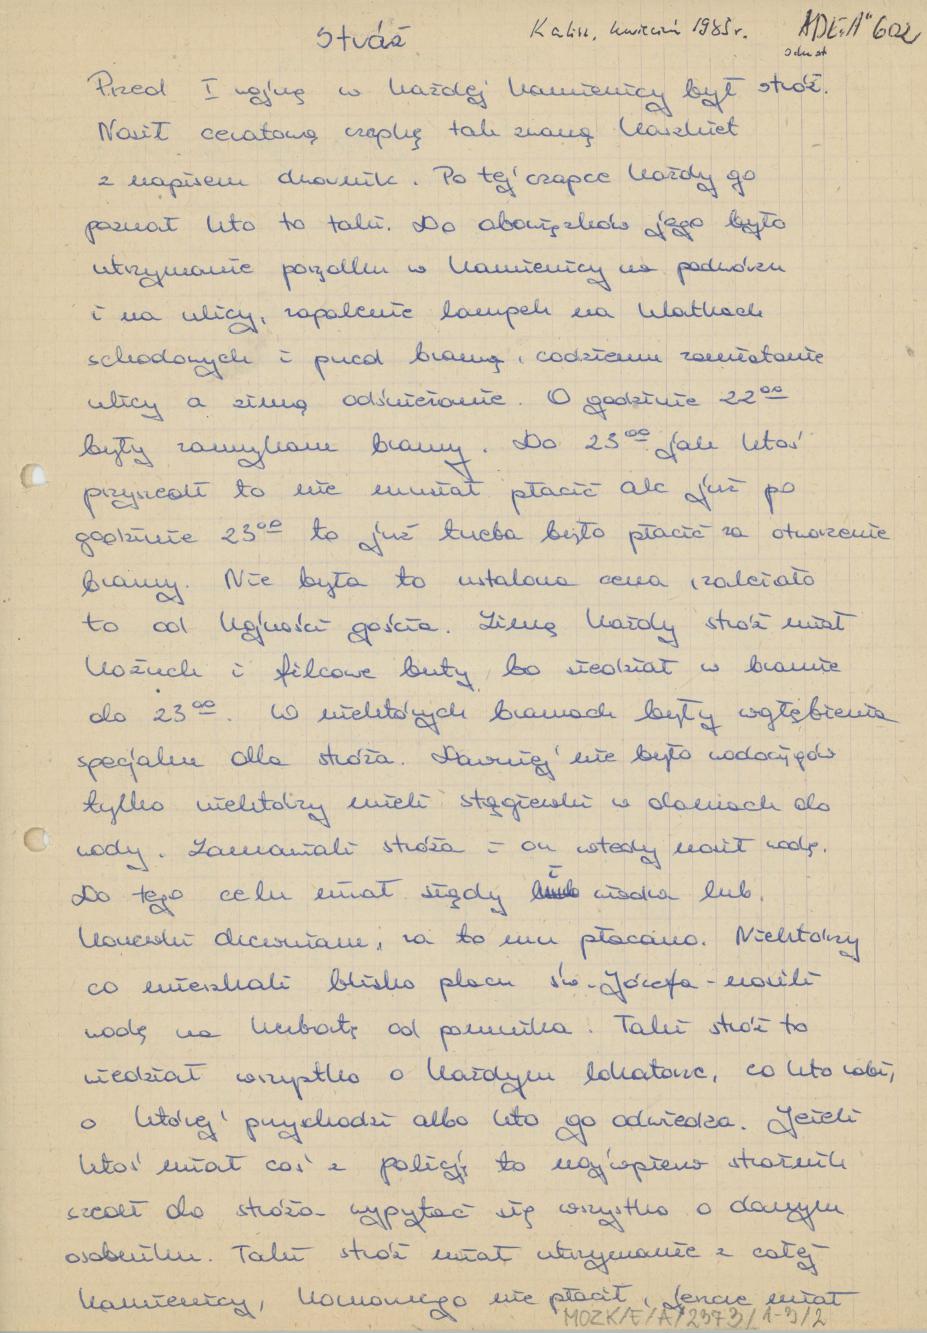 Stróż
Kalisz, kwiecień 1985 r.
ADE "A" 602
Przed I wojną w każdej kamienicy był stróż.
Nosił ceratową czapkę tak zwaną kaszkiet
z napisem dwornik. Po tej czapce każdy go
poznał kto to taki. Do obowiązków jego było
utrzymanie porządku w kamienicy na podwórzu
i na ulicy, zapalenie lampek na klatkach
schodowych i przed bramą, codzienne zamiatanie
ulicy a zimą odśnieżanie. O godzinie 22⁰⁰
były zamykane bramy. Do 23⁰⁰ jak ktoś
przyszedł to nie musiał płacić ale już po
godzinie 23⁰⁰ to już trzeba było płacić za otworzenie
bramy. Nie była to ustalona cena, zależało
to od hojności gościa. Zimą każdy stróż miał
kożuch i filcowe buty, bo siedział w bramie
do 23⁰⁰. W niektórych bramach były wgłębienia
specjalne dla stróża. Dawniej nie było wodociągów
tylko niektórzy mieli stągiewki w domach do
wody. Zamawiali stróża i on wtedy nosił wodę.
Do tego celu miał sądy i wiadra lub
konewki drewniane, za to mu płacono. Niektórzy
co mieszkali blisko placu św. Józefa - nosili
wodę na herbatę od pomnika. Taki stróż to
wiedział wszystko o każdym lokatorze, co kto robi,
o której przychodzi albo kto go odwiedza. Jeżeli
ktoś miał coś z policją to najpierw strażnik
szedł do stróża wypytać się wszystko o danym
osobniku. Taki stróż miał utrzymanie z całej
kamienicy, komornego nie płacił, jeszcze miał
MOZK/E/A/2373/1-3/2